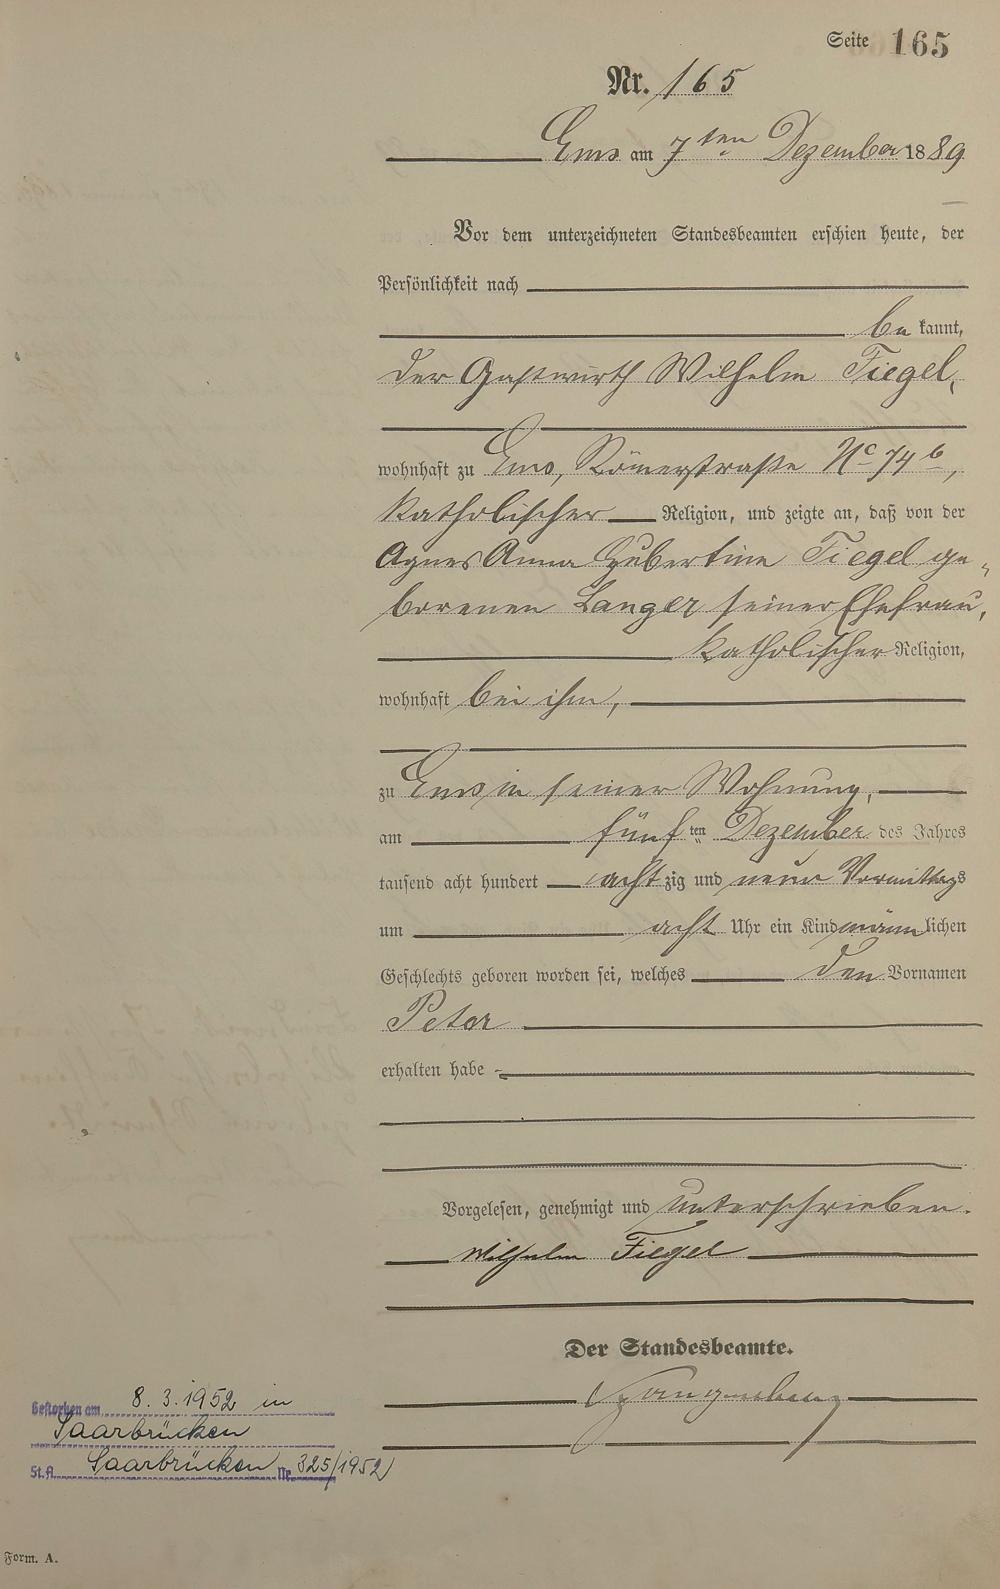 Seite 165
Nr. 165
Ems am 7ten Dezember 1889
Vor dem unterzeichneten Standesbeamten erschien heute, der
Persönlichkeit nach
be kannt,
der Gastwirth Wilhelm Fiegel,
wohnhaft zu Ems, Römerstraße No 74 b,
katholischer Religion, und zeigte an, daß von der
Agnes Anna Hubertine Fiegel ge-
borenen Langer seiner Ehefrau,
katholischer Religion,
wohnhaft bei ihm,
zu Ems in seiner Wohnung,
am fünf ten Dezember des Jahres
tausend acht hundert acht zig und neun Vormittags
um acht Uhr ein Kind männlichen
Geschlechts geboren worden sei, welches den Vornamen
Peter
erhalten habe
Vorgelesen, genehmigt und unterschrieben.
Wilhelm Fiegel
Der Standesbeamte.
Gestorben am 8.3.1952 in
Saarbrücken
St.A. Saarbrücken Nr. 325/1952
Form. A.